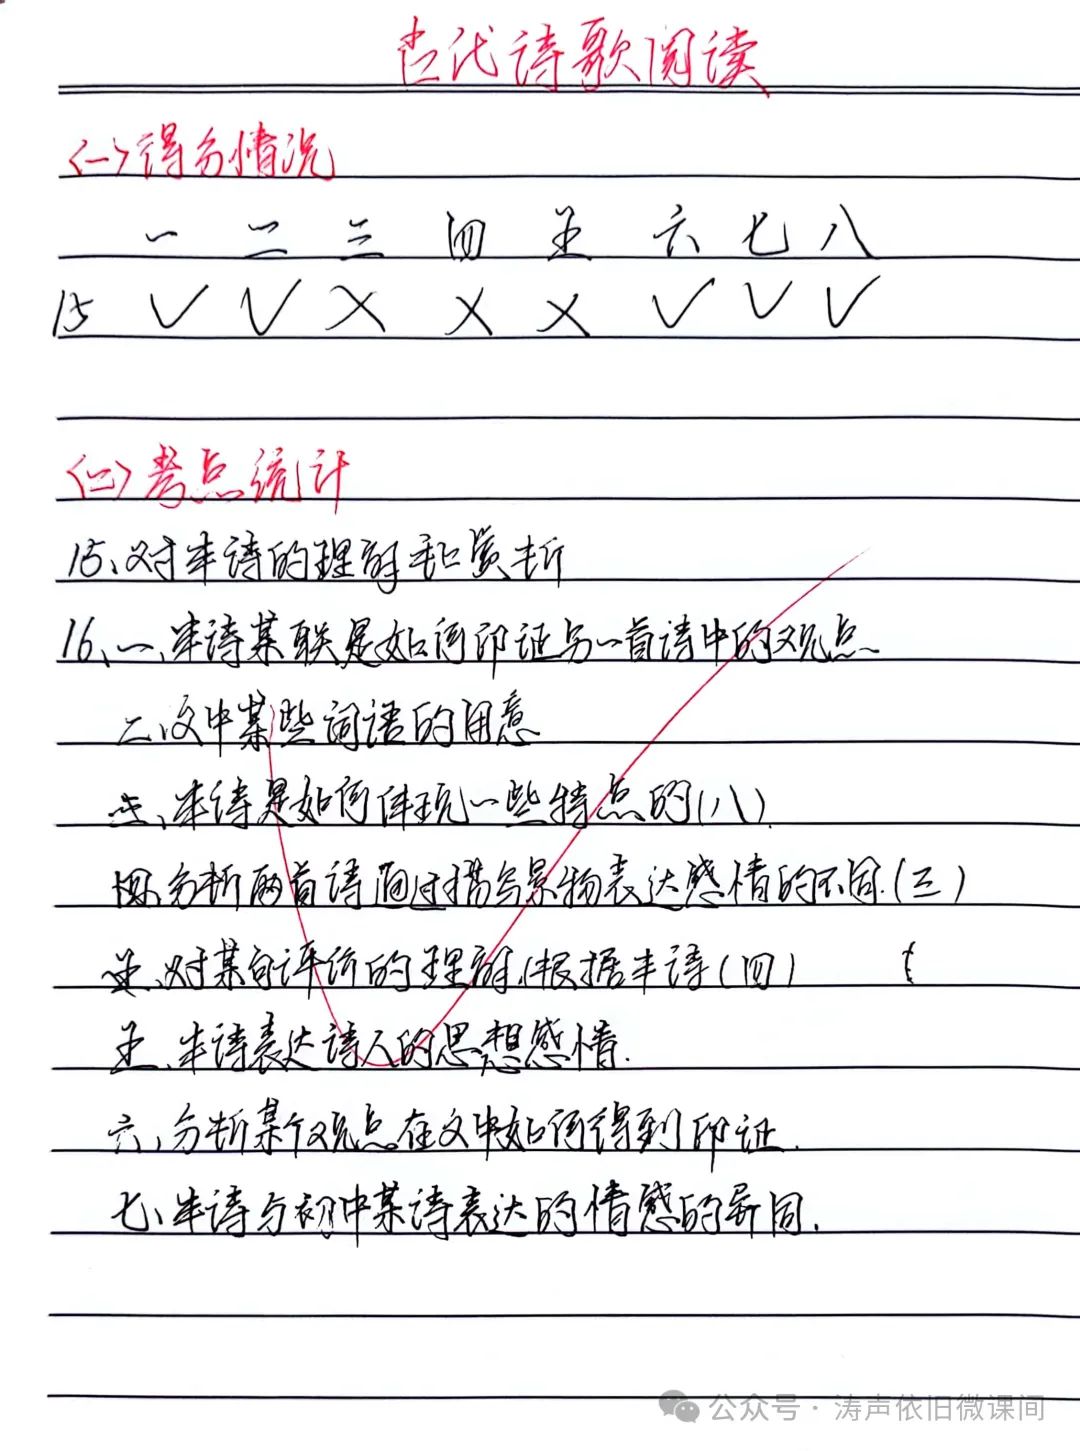 古代诗歌阅读
〈一〉得分情况
一 二 三 四 五 六 七 八
15 ✓ ✓ ✗ ✗ ✗ ✓ ✓ ✓
〈二〉考点统计
15、对本诗的理解和赏析
16、一、本诗某联是如何印证另一首诗中的观点
二、文中某些词语的用意
三、本诗是如何体现一些特点的(八)
四、分析两首诗通过描写景物表达感情的不同.(三)
五、对某句评价的理解.(根据本诗(四)
五、本诗表达诗人的思想感情.
六、分析某个观点在文中如何得到印证.
七、本诗与初中某诗表达的情感的异同.
公众号·涛声依旧微课间